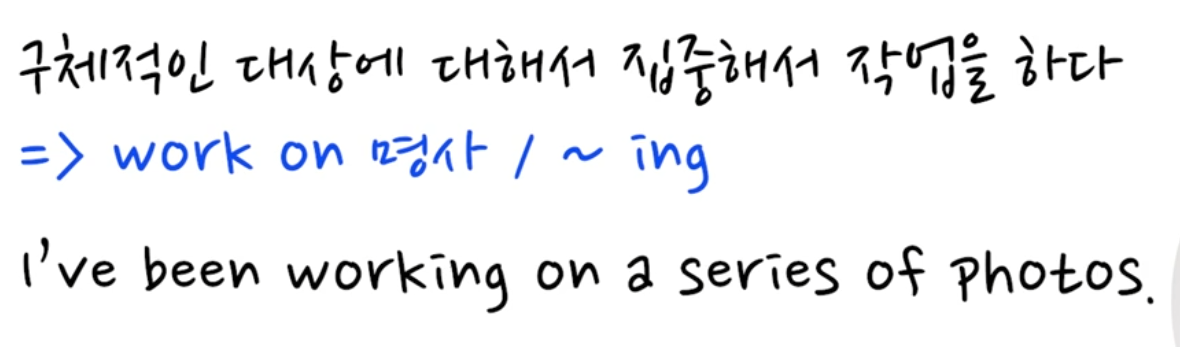 구체적인 대상에 대해서 집중해서 작업을 하다
=> work on 명사 / ~ ing
I've been working on a series of photos.